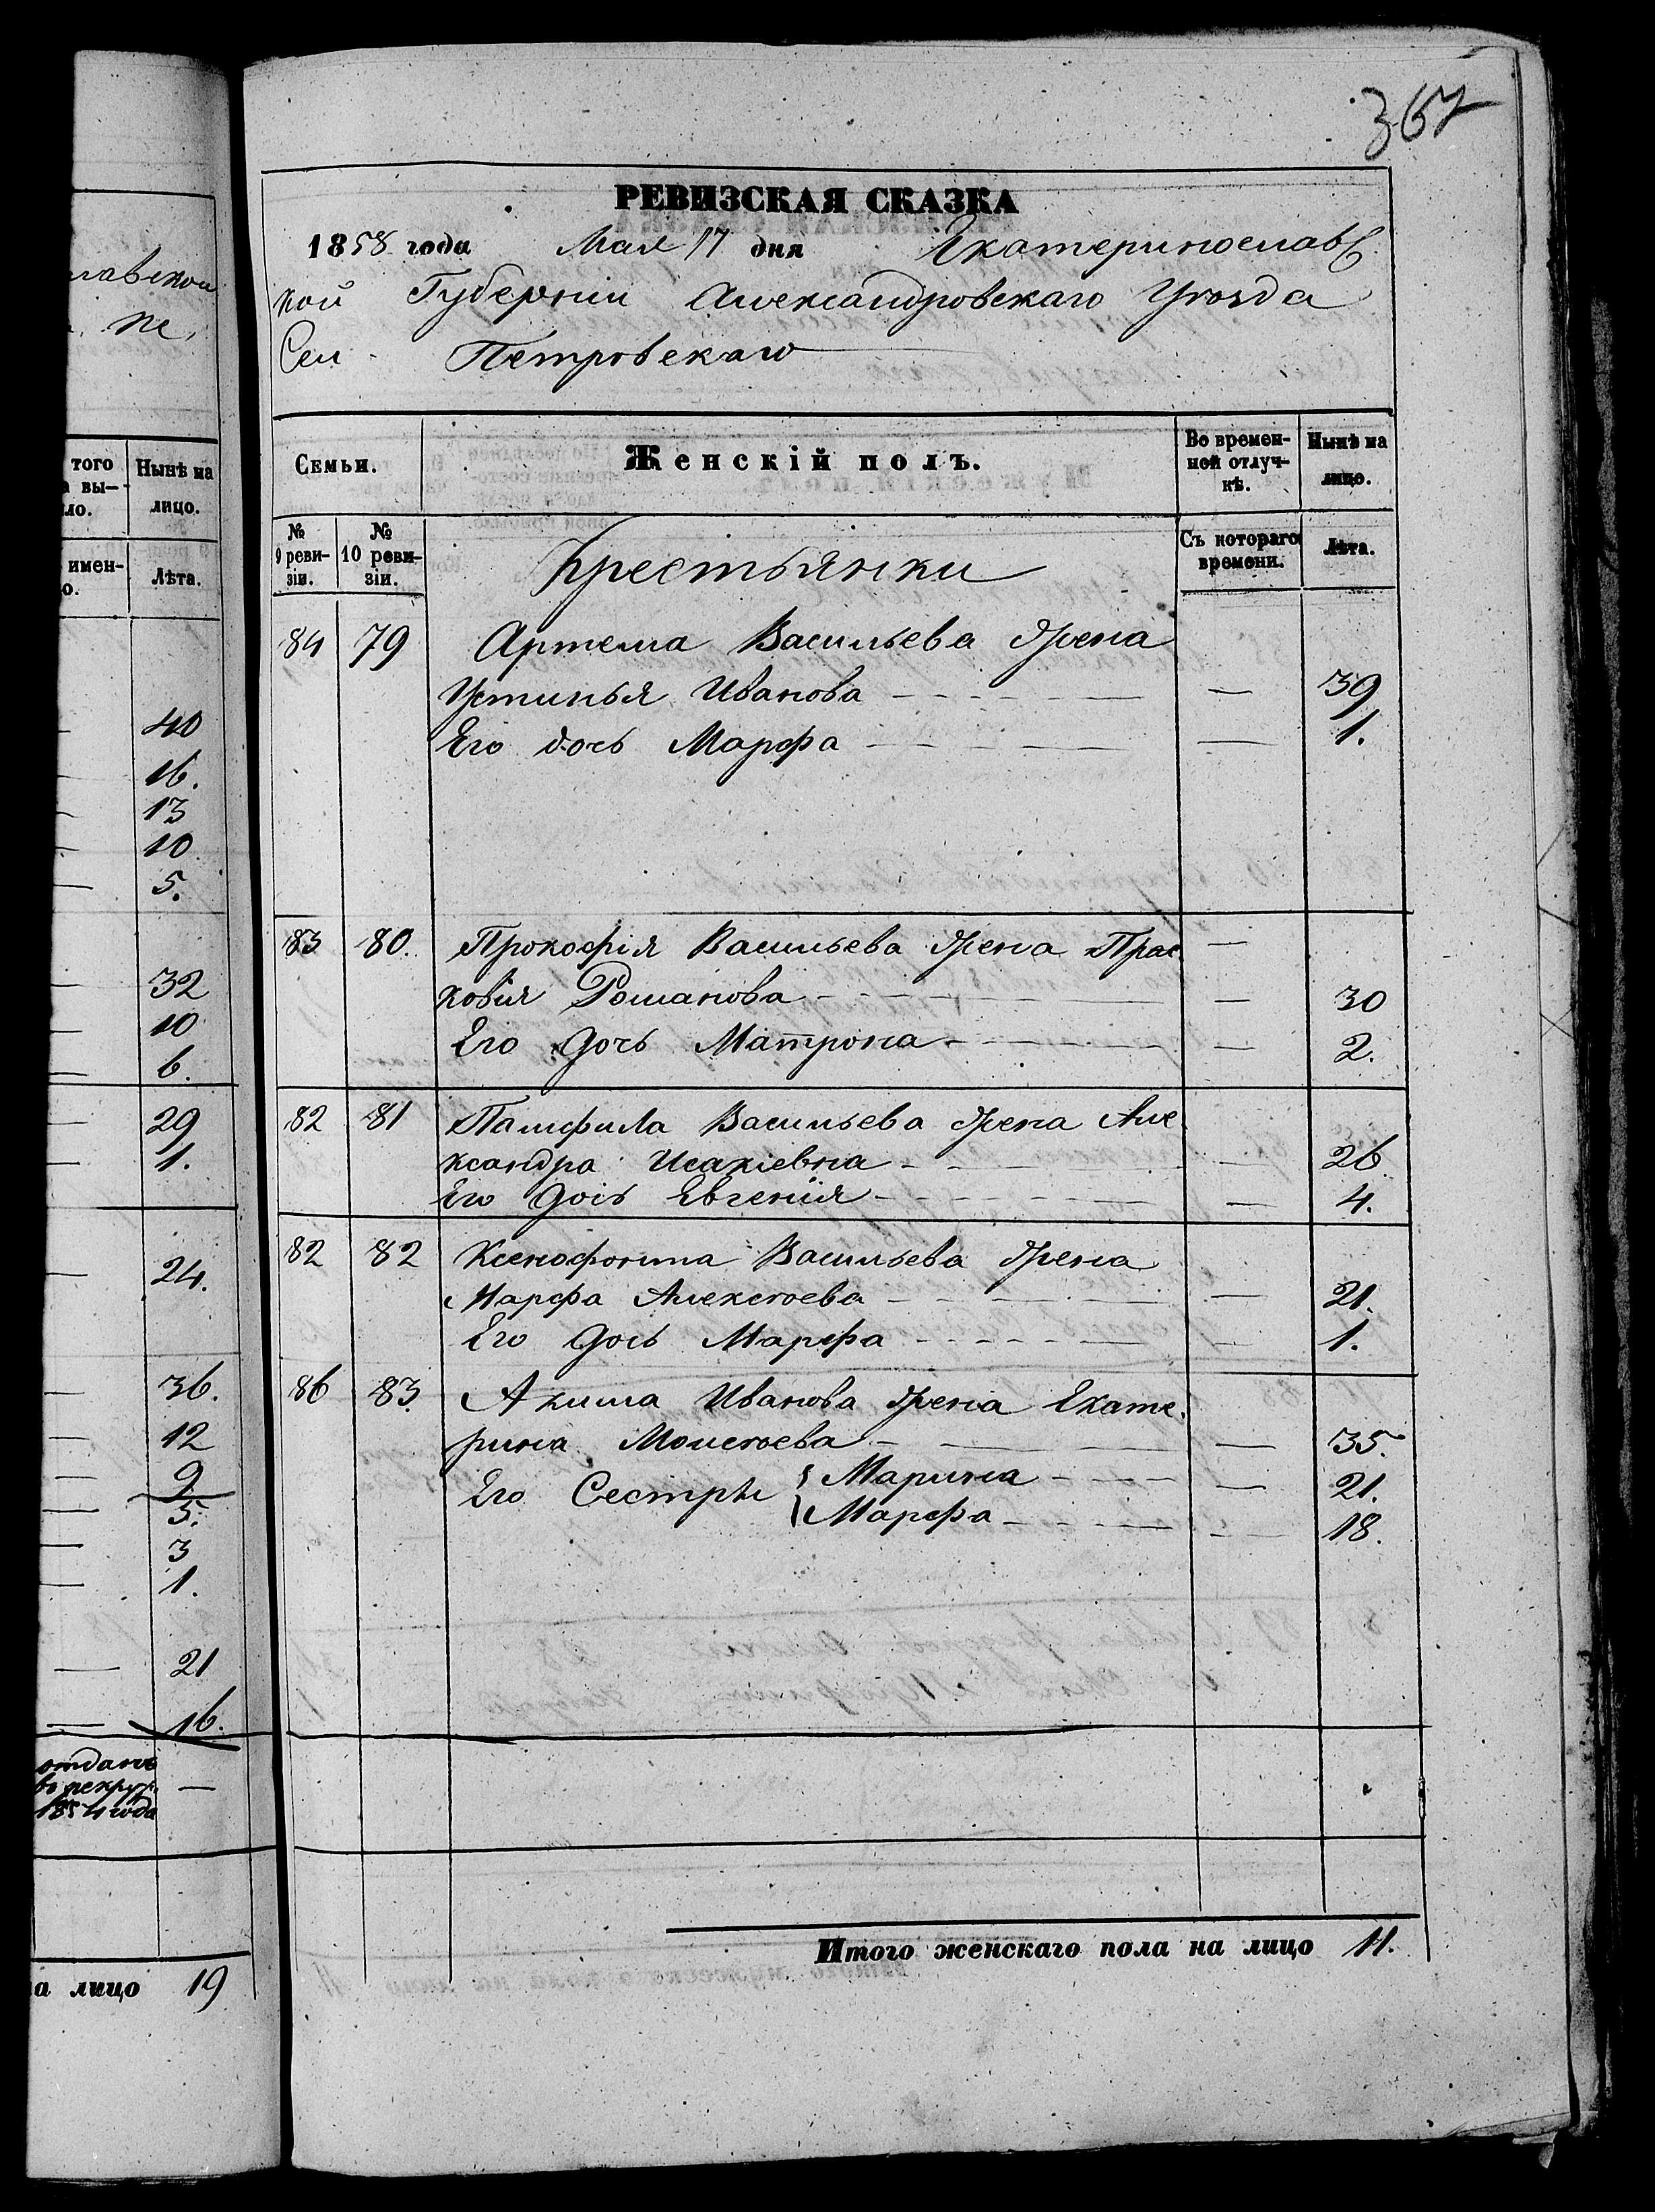 367
РЕВИЗСКАЯ СКАЗКА
1858 года Мая 17 дня Екатеринославс
кой Губерніи Александровскаго Уѣзда
Сел Петровскаго
лавской
того вы-
ло.
Нынѣ на лицо.
имен-
о.
Лѣта.
40
16.
13
10
5.
32
10
6.
29
1.
24.
36.
12
9
5.
3
1.
21
16.
отданъ
въ рекрут
1854 года —
а лицо 19
Семьи. Женскій полъ. Во времен-ной отлуч-кѣ. Нынѣ на лицо.
№ 9 реви-зіи. № 10 реви-зіи. Крестьянки Съ котораго времени. Лѣта.
84 79 Артема Васильева жена
Устинья Иванова — — 39
Его дочь Марфа — — 1.
83 80. Прокофія Васильева жена Прас —
ковія Романова — — 30
Его дочь Матрона — — 2.
82 81 Памфила Васильева жена Але
ксандра Исакіевна — — 26
Его дочь Евгенія — — 4.
82 82 Ксенофонта Васильева жена
Марфа Алексѣева — — 21.
Его дочь Марфа — — 1.
86 83. Акима Иванова жена Екате.
рина Моисѣева — — 35.
Его Сестры { Марина — — 21.
Марфа — — 18.
Итого женскаго пола на лицо 11.